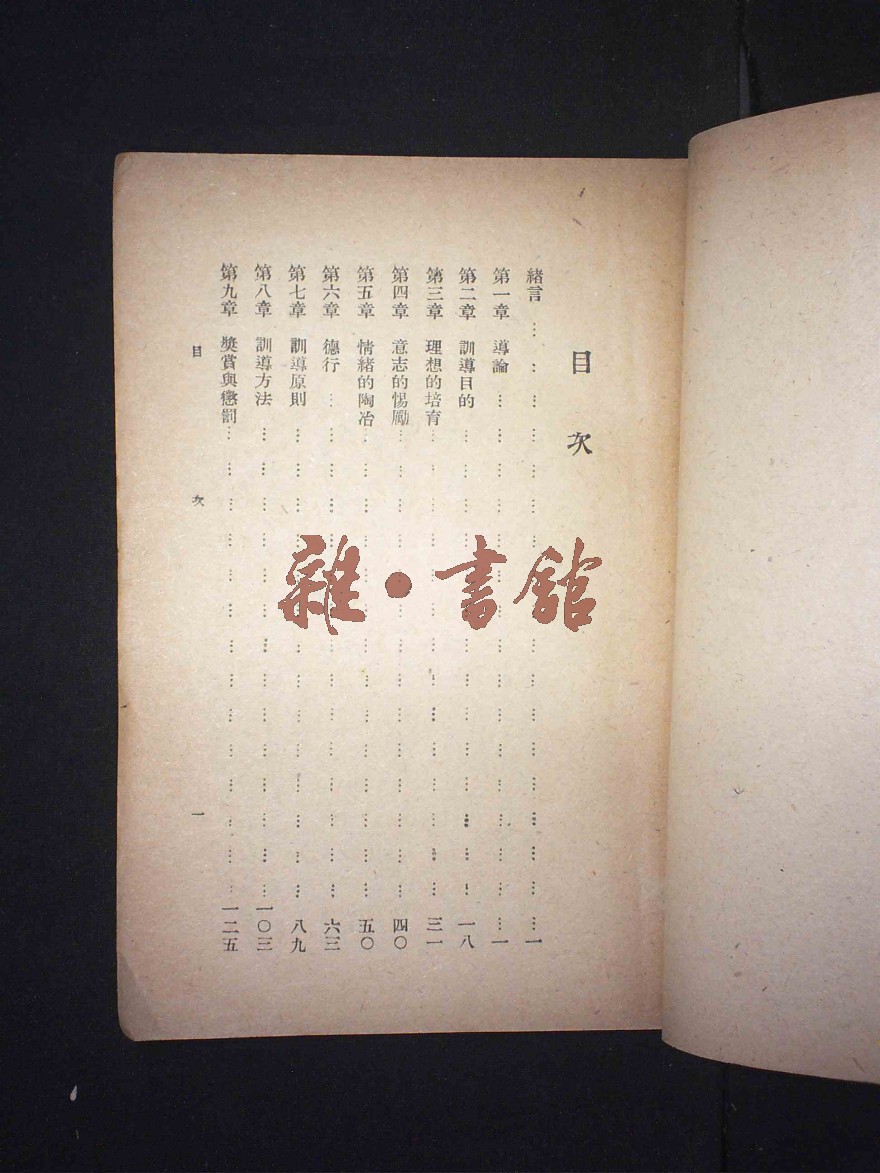 目次
緒言………………一
第一章 導論………………一
第二章 訓導目的………………一八
第三章 理想的培育………………三一
第四章 意志的惕勵………………四〇
第五章 情緒的陶冶………………五〇
第六章 德行………………六三
第七章 訓導原則………………八九
第八章 訓導方法………………一〇三
第九章 獎賞與懲罰………………一二五
目次 一
雜·書館